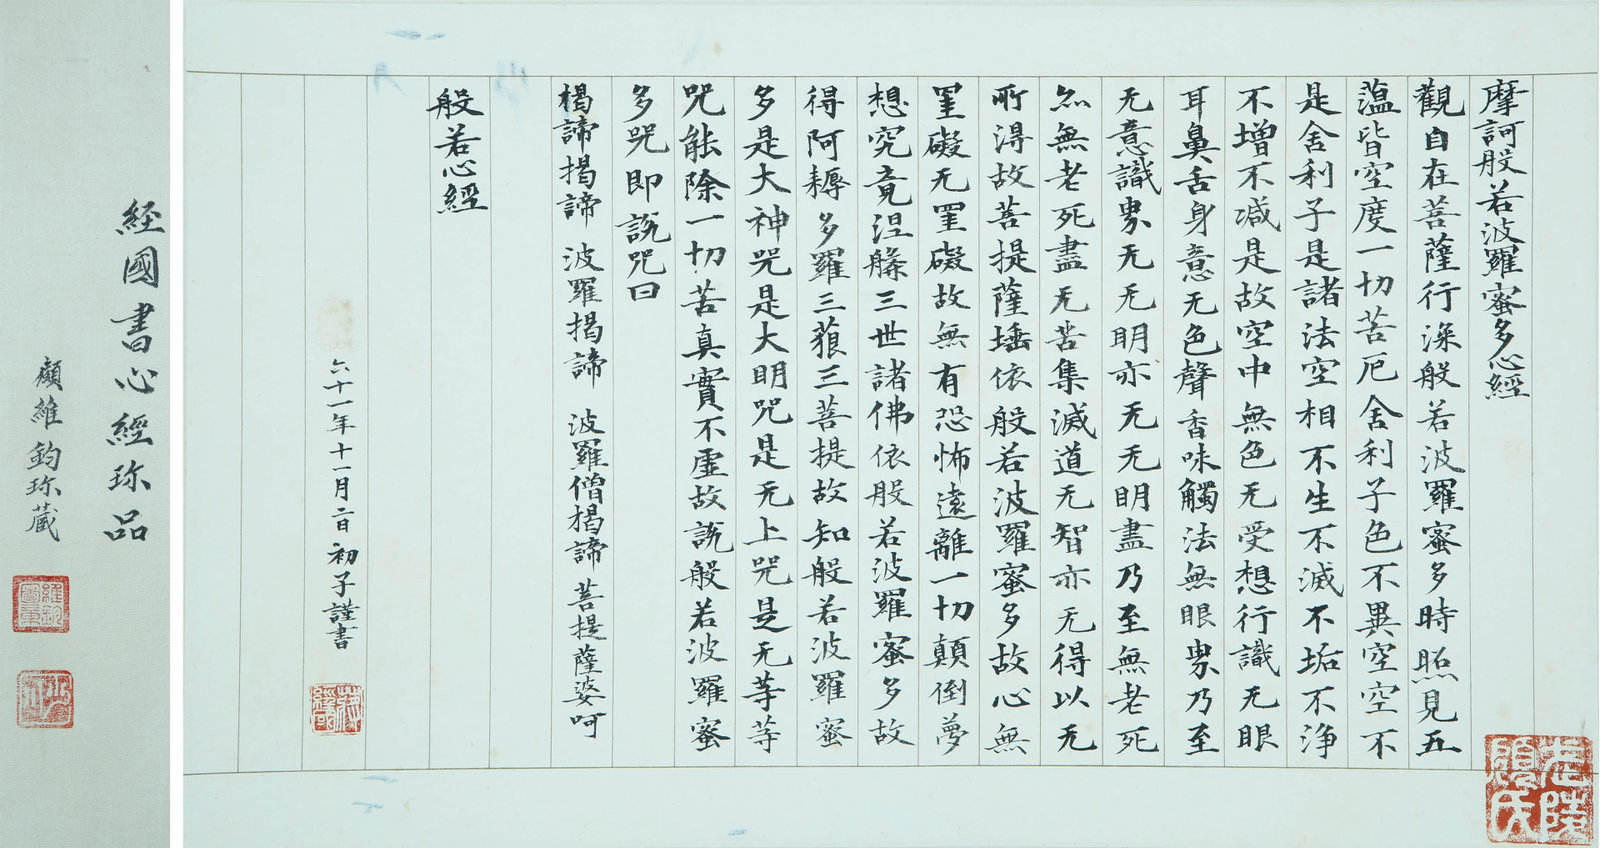 摩訶般若波羅蜜多心經
觀自在菩薩行深般若波羅蜜多時照見五
蕰皆空度一切苦厄舍利子色不異空空不
是舍利子是諸法空相不生不滅不垢不淨
不增不減是故空中無色无受想行識无眼
耳鼻舌身意无色聲香味觸法無眼界乃至
无意識界无无明亦无无明盡乃至無老死
亦無老死盡无苦集滅道无智亦无得以无
所得故菩提薩埵依般若波羅蜜多故心無
罣礙无罣礙故無有恐怖遠離一切顛倒夢
想究竟涅槃三世諸佛依般若波羅蜜多故
得阿耨多羅三藐三菩提故知般若波羅蜜
多是大神咒是大明咒是无上咒是无等等
咒能除一切苦真實不虛故說般若波羅蜜
多咒即說咒曰
揭諦揭諦 波羅揭諦 波羅僧揭諦 菩提薩婆呵
般若心經
六十一年十一月二日 初子謹書
蔣經國
武陵顧氏
經國書心經珍品
顧維鈞珍藏
維鈞圖章